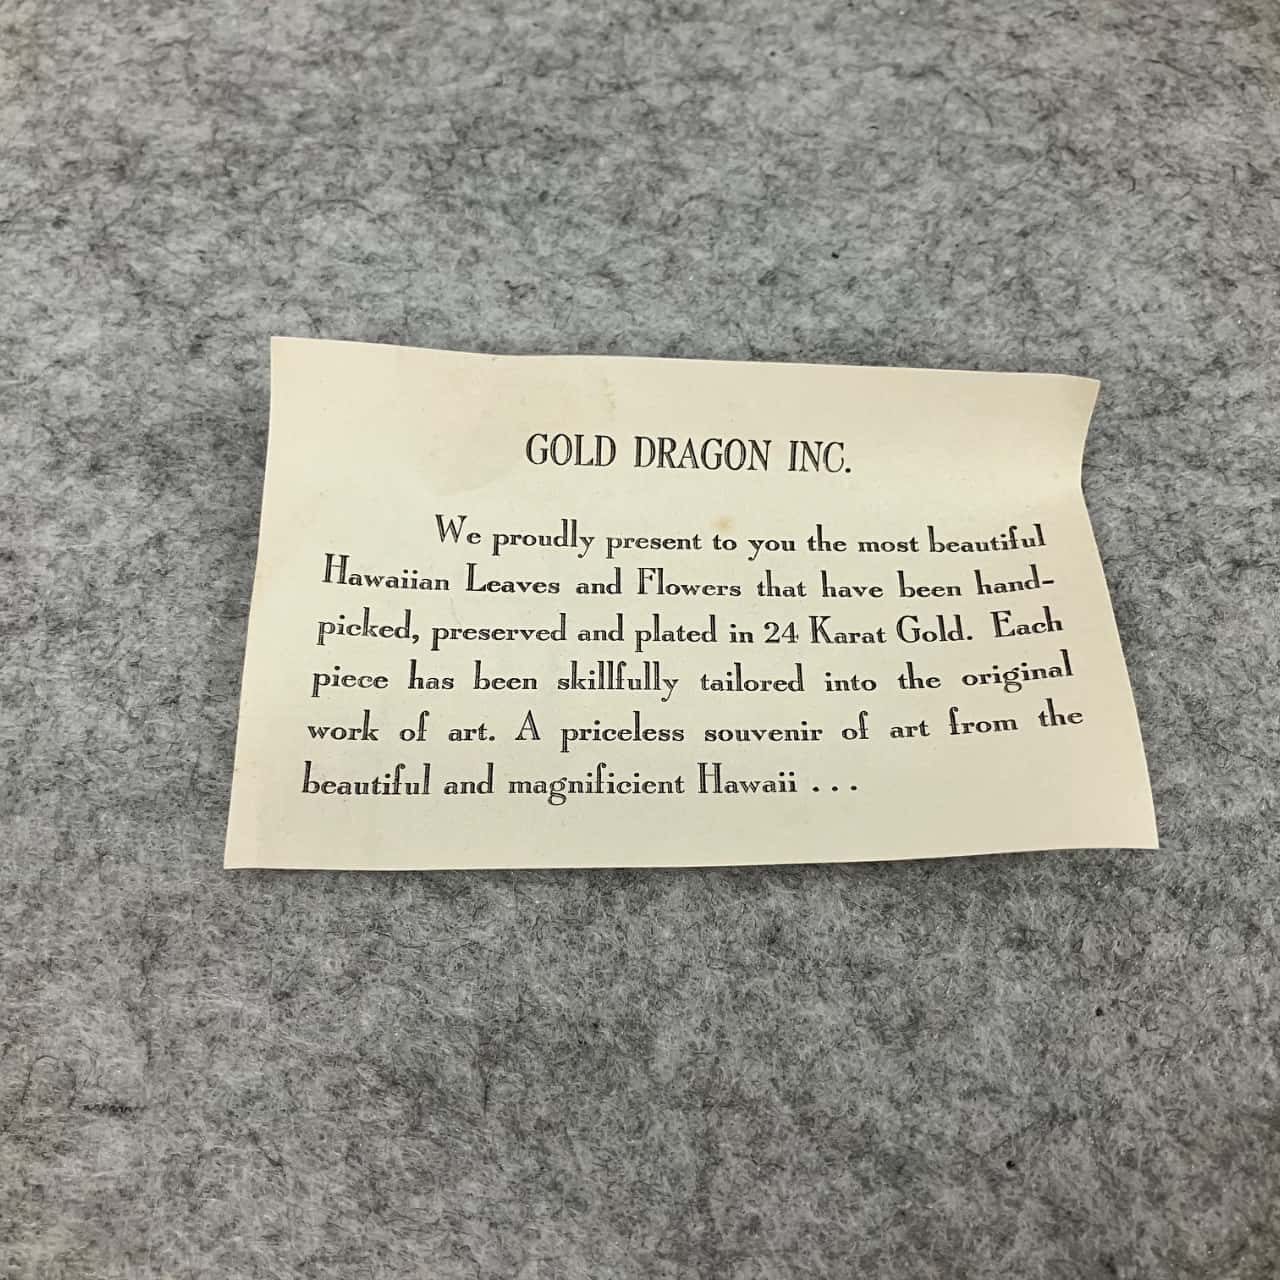 GOLD DRAGON INC.
We proudly present to you the most beautiful
Hawaiian Leaves and Flowers that have been hand-
picked, preserved and plated in 24 Karat Gold. Each
piece has been skillfully tailored into the original
work of art. A priceless souvenir of art from the
beautiful and magnificient Hawaii . . .